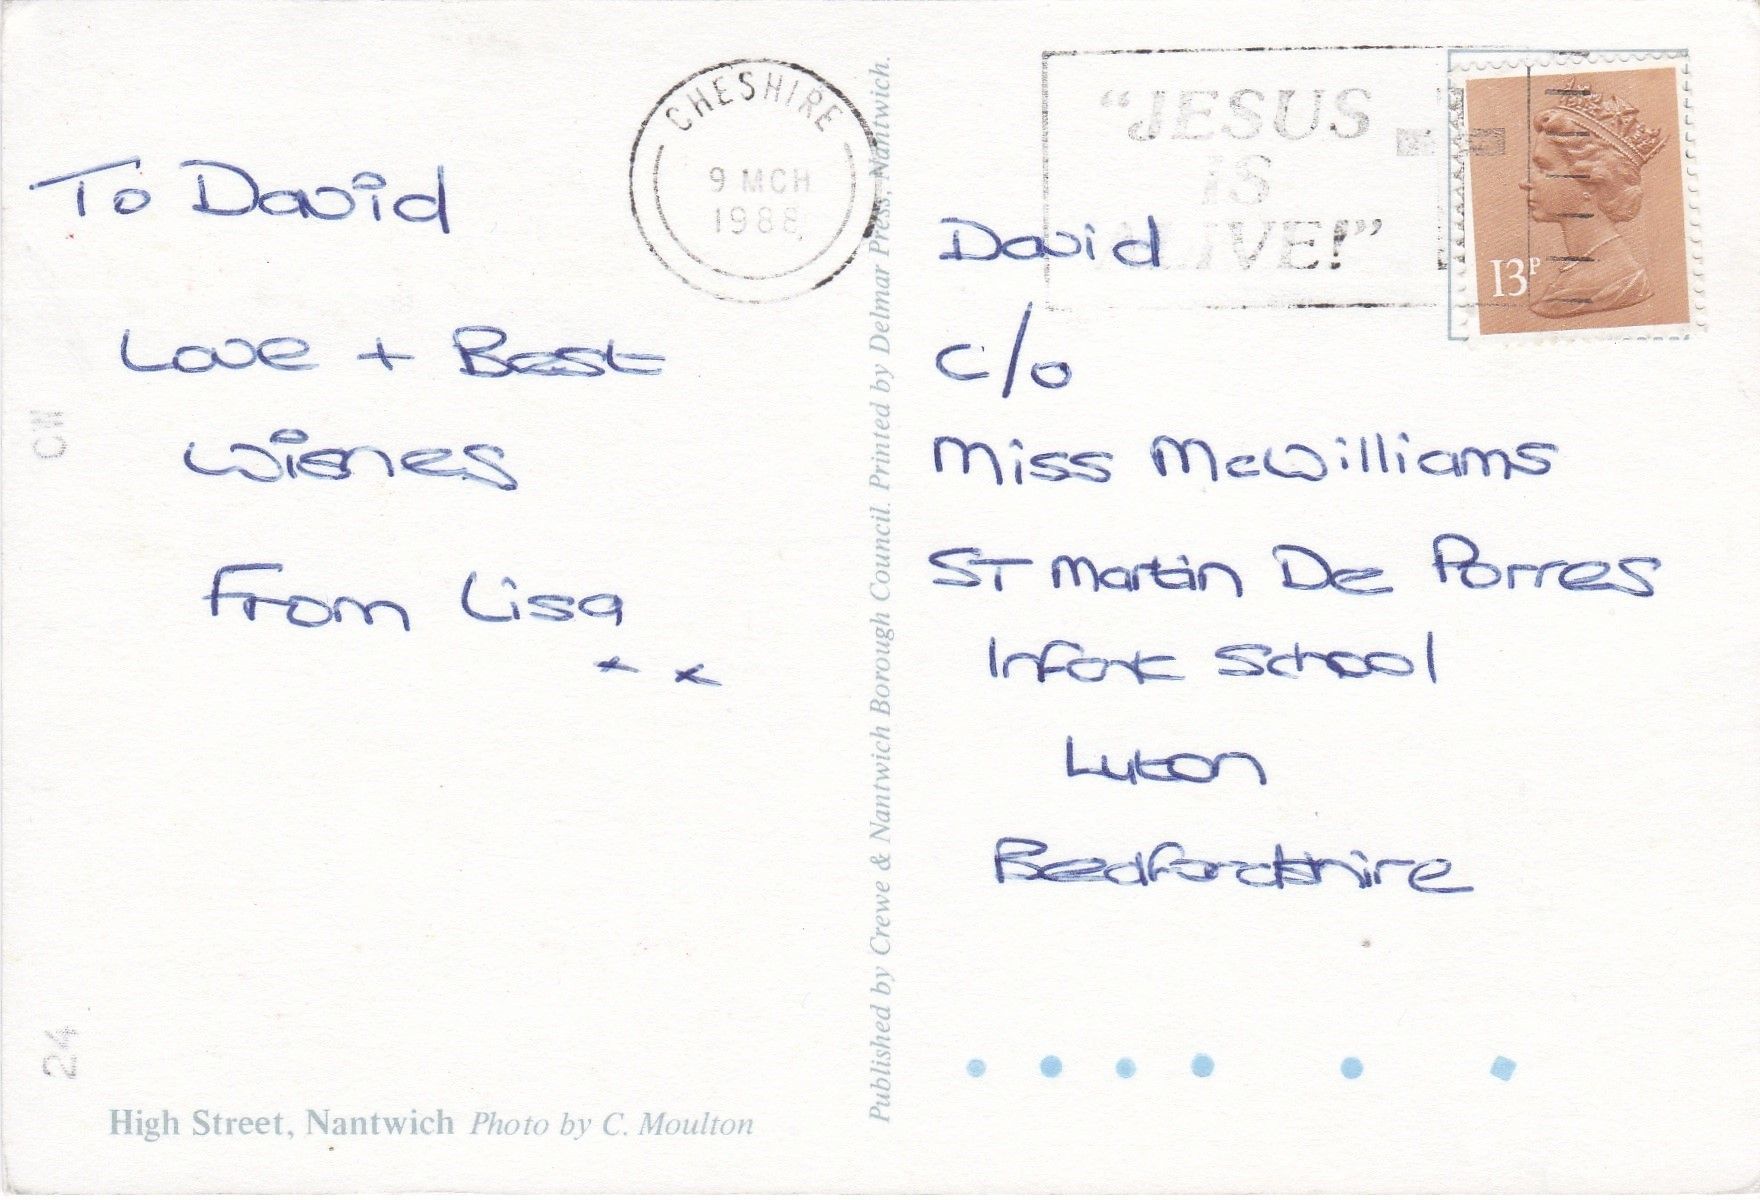 CHESHIRE
9 MCH
1988
"JESUS
IS
ALIVE!"
13P
To David
Love + Best
Wishes
From Lisa
x x
David
C/o
Miss McWilliams
ST Martin De Porres
Infant School
Luton
Bedfordshire
CH
24
High Street, Nantwich Photo by C. Moulton
Published by Crewe & Nantwich Borough Council. Printed by Delmar Press, Nantwich.